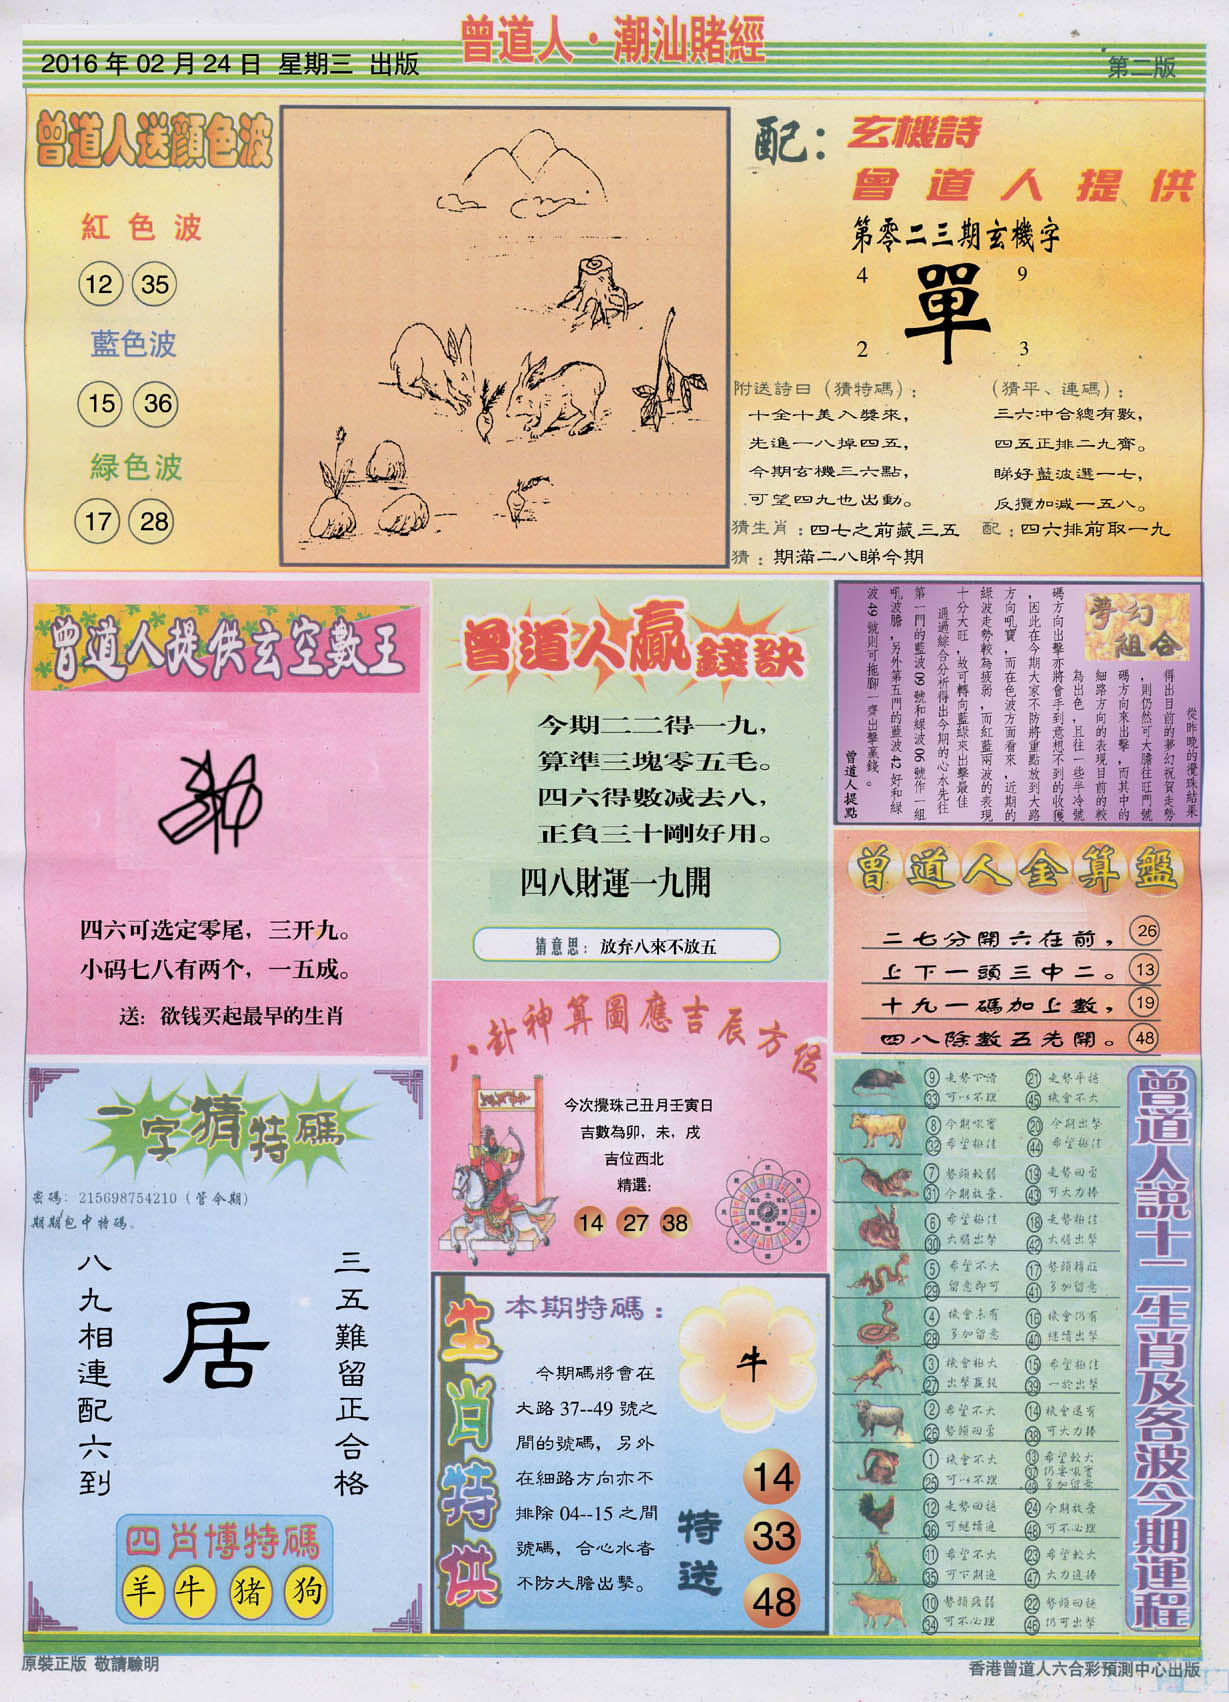 曾道人·潮汕賭經
2016 年 02 月 24 日 星期三 出版
第二版
曾道人送顏色波
紅色波
12 35
藍色波
15 36
緑色波
17 28
配：玄機詩
曾道人提供
第零二三期玄機字
4 9
單
2 3
附送詩曰（猜特碼）：
十全十美入獎來，
先進一八掉四五，
今期玄機三六點，
可望四九也出動。
（猜平、連碼）：
三六冲合總有數，
四五正排二九齊。
睇好藍波選一七，
反攬加減一五八。
猜生肖：四七之前藏三五
配：四六排前取一九
猜：期滿二八睇今期
曾道人提供玄空數王
四六可选定零尾，三开九。
小码七八有两个，一五成。
送：欲钱买起最早的生肖
曾道人贏錢訣
今期二二得一九，
算準三塊零五毛。
四六得數減去八，
正負三十剛好用。
四八財運一九開
猜意思：放弃八來不放五
夢幻組合
從昨晚的攪珠結果
得出目前的夢幻祝賀走勢
，則仍然可大膽往旺門號
碼方向來出擊，而其中的
細路方向的表現目前的較
為出色，且往一些半冷號
碼方向出擊亦將會手到意想不到的收獲
，因此在今期大家不防將重點放到大路
方向吼寶，而在色波方面看來，近期的
綠波走勢較為疲弱，而紅藍兩波的表現
十分大旺，故可轉向藍綠來出擊最佳
通過綜合分析得出今期的心水先往
第一門的藍波 09 號和緑波 06 號作一組
吼波膽，另外第五門的藍波 42 好和綠
波 49 號則可拖腳一齊出擊贏錢。
曾道人提點
曾道人金算盤
二七分開六在前， 26
上下一頭三中二。 13
十九一碼加上數， 19
四八除數五先開。 48
八卦神算圖應吉辰方位
今次攪珠己丑月壬寅日
吉數為卯，未，戌
吉位西北
精選：
14 27 38
一字猜特碼
密碼：215698754210（管今期）
期期包中特碼。
八九相連配六到
居
三五難留正合格
四肖博特碼
羊 牛 猪 狗
生肖特供
本期特碼：
牛
今期碼將會在
大路 37--49 號之
間的號碼，另外
在細路方向亦不
排除 04--15 之間
號碼，合心水者
不防大膽出擊。
特送
14
33
48
曾道人説十二生肖及各波今期運程
9 走勢下滑 21 走勢平穩
33 可以不理 45 機會不大
8 今期吼實 20 今期出擊
32 希望極佳 44 希望極佳
7 勢頭較弱 19 走勢回勇
31 今期放棄 43 可大力捧
6 希望極佳 18 走勢極佳
30 大膽出擊 42 大膽出擊
5 希望不大 17 勢頭轉旺
29 留意即可 41 多加留意
4 機會未有 16 機會仍有
28 多加留意 40 繼續出擊
3 機會極大 15 希望極佳
27 出擊贏錢 39 一於出擊
2 希望不大 14 機會還有
26 勢頭回勇 38 可大力捧
1 機會不大 13 希望較大
25 可以不理 37 仍要吼實
49 多加留意
12 走勢回穩 24 今期放棄
36 可繼續追 48 可不必理
11 希望不大 23 希望較大
35 可下期追 47 大力追捧
10 勢頭疲弱 22 勢頭回穩
34 可不必理 46 仍可出擊
原裝正版 敬請驗明
香港曾道人六合彩預測中心出版